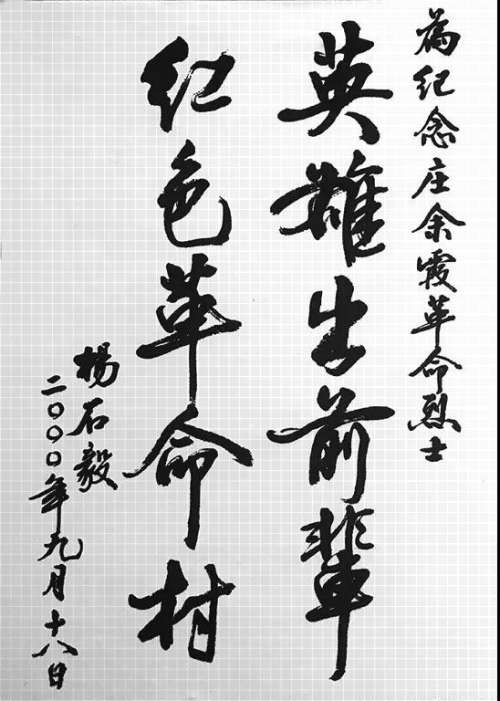 為纪念庄余霞革命烈士
英雄出前辈
红色革命村
楊石毅
二〇〇〇年九月十八日